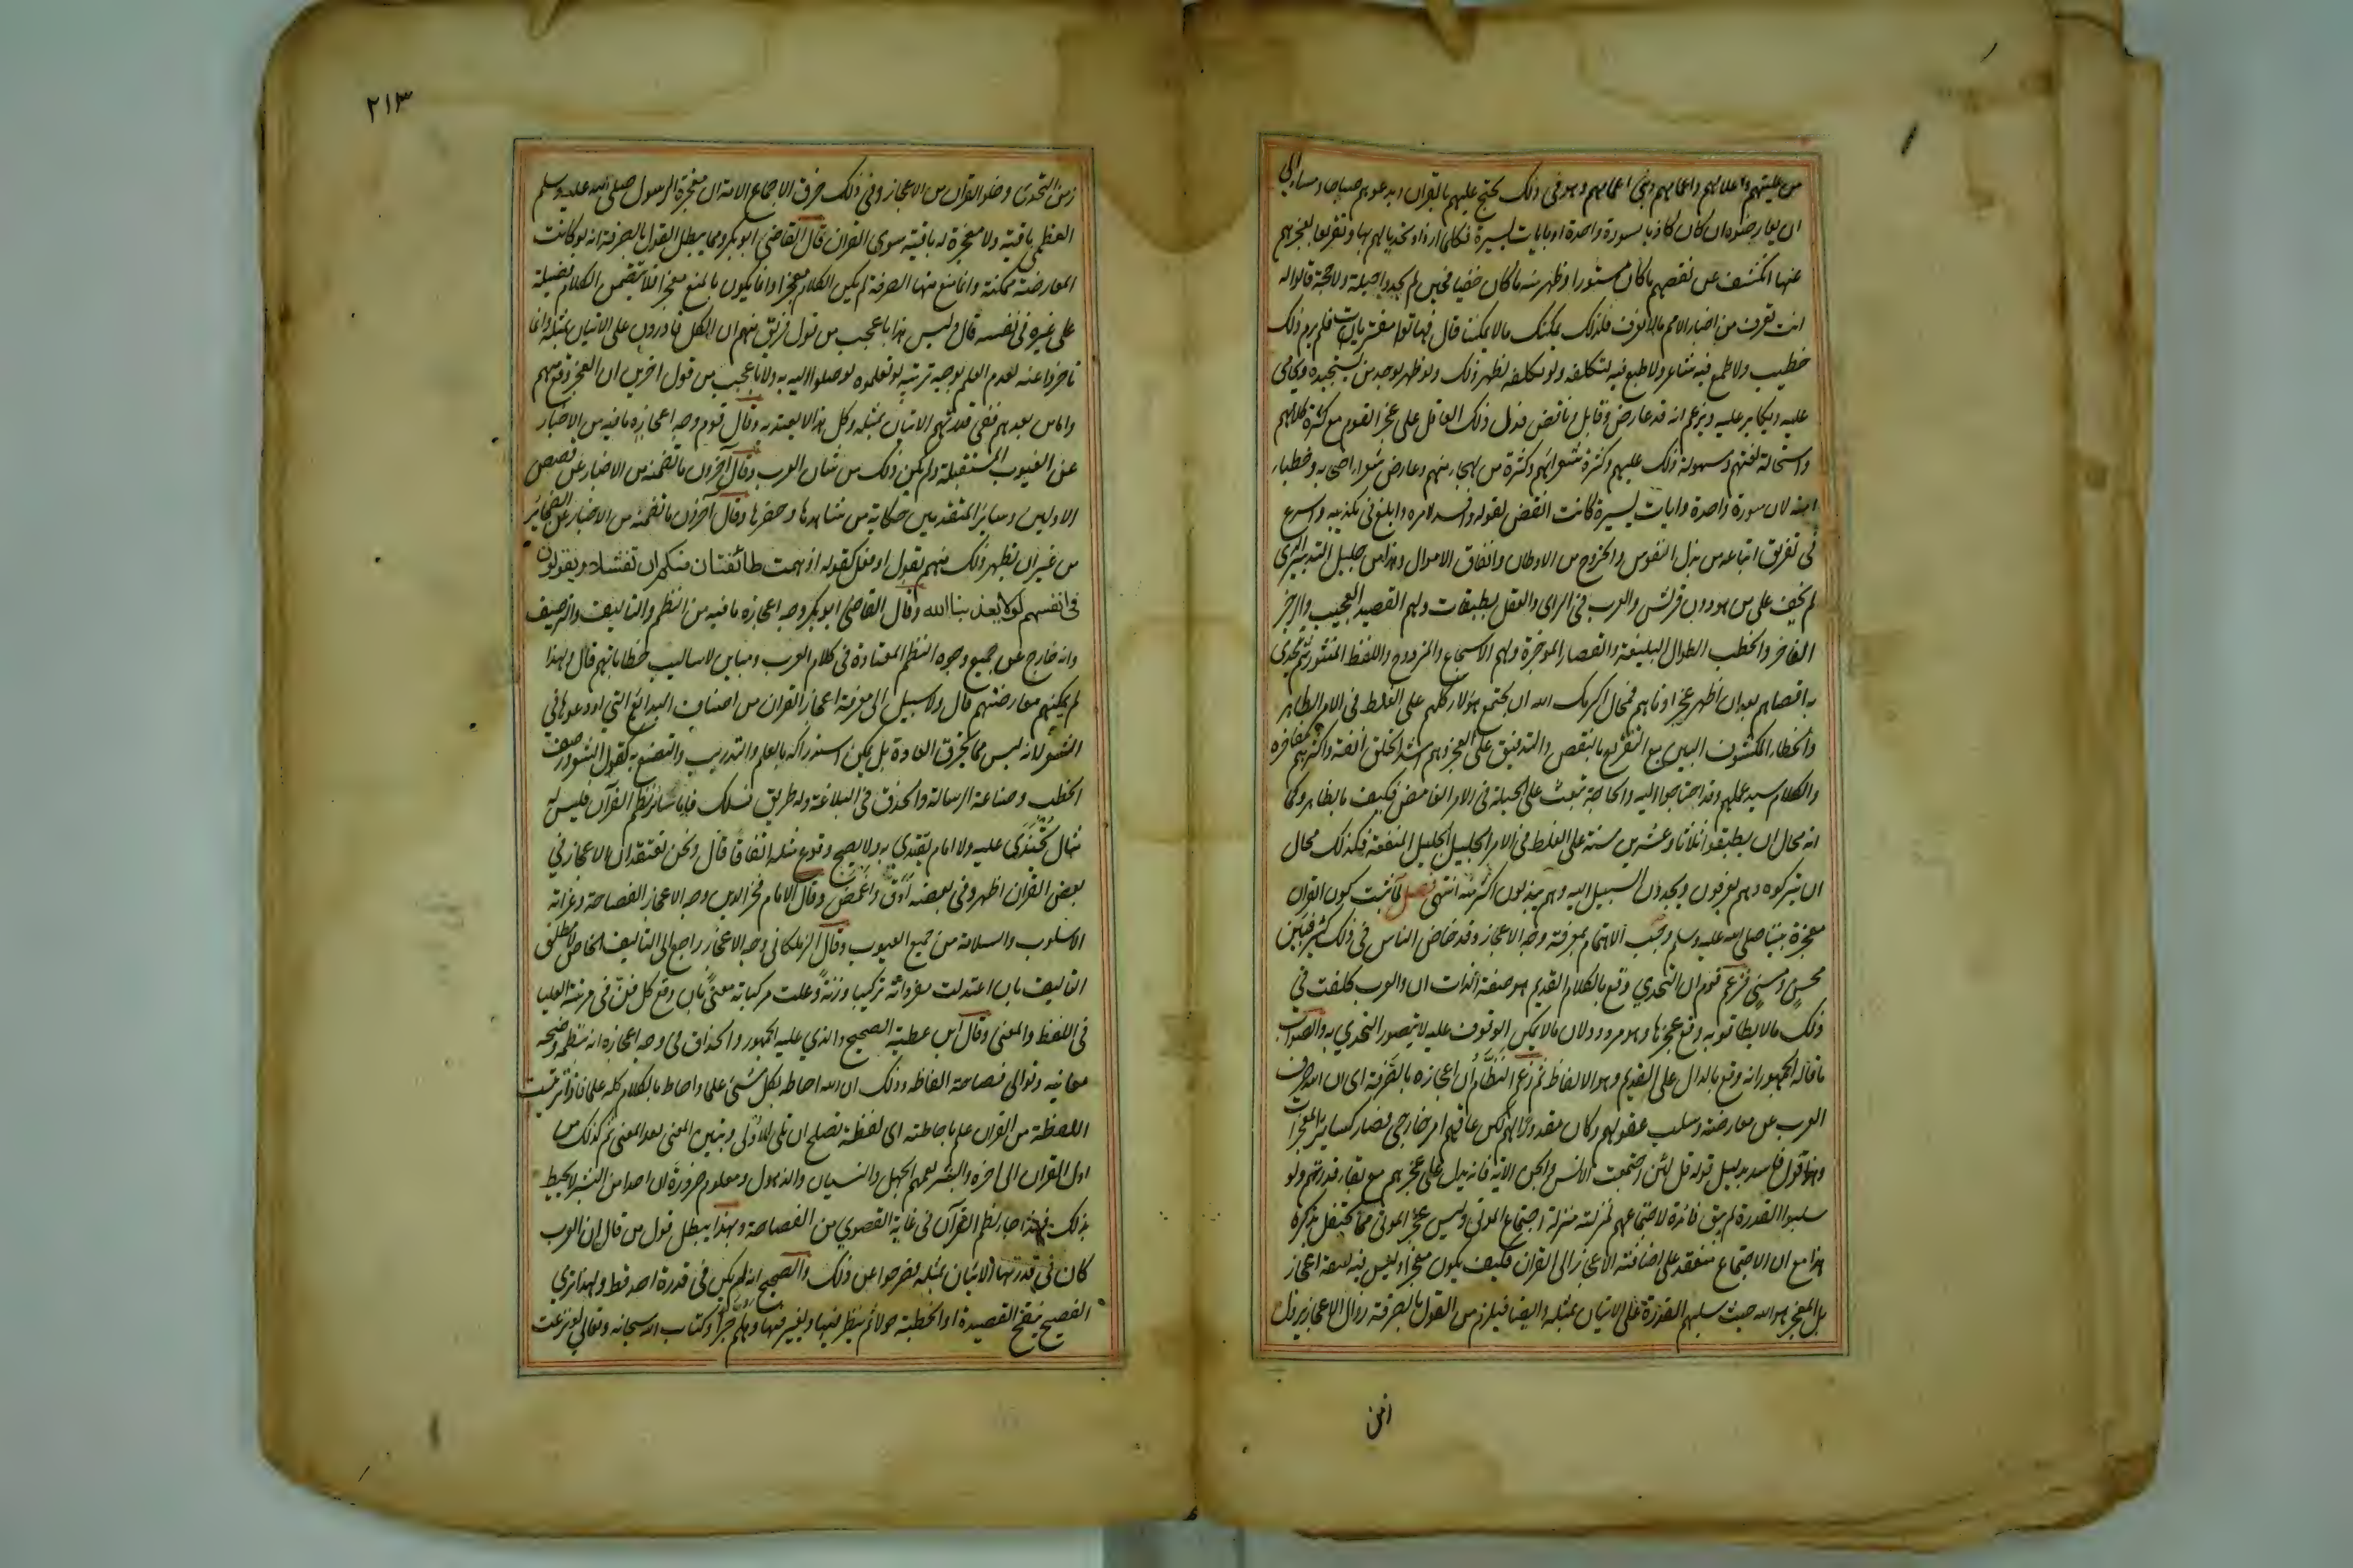 من عليتهم واعلامهم واعمامهم وبني اعمامهم وهو في ذلك يحتج عليهم بالقران ويدعوهم صباحا ومساء الى
ان يعارضوه ان كان كاذبا بسورة واحدة او بايات يسيرة فكلما ازداد تحديا لهم بها وتقريعا بعجزهم
عنها انكشف عن نقصهم ما كان مستورا وظهر منه ما كان خفيا فحين لم يجدوا حيلة ولا حجة قالوا له
انت تعرف من اخبار الامم ما لا نعرف فلذلك يمكنك ما لا يمكننا قال فهاتوا مفتريات فلم يرم ذلك
خطيب ولا طمع فيه شاعر ولا طبع فيه لتكلفه ولو تكلفه لظهر ذلك ولو ظهر لوجد من يستجيده ويحامي
عليه ويكابر عليه ويزعم انه قد عارض وقابل وناقض فدل ذلك العاقل على عجز القوم مع كثرة كلامهم
واستحالة لغتهم وسهولة ذلك عليهم وكثرة شعرائهم وكثرة من هجاه منهم وعارض شعراء اصحابه وخطباء
امته لان سورة واحدة وايات يسيرة كانت انقض لقوله وافسد لامره وابلغ في تكذيبه واسرع
في تفريق اتباعه من بذل النفوس والخروج من الاوطان وانفاق الاموال وهذا من جليل التدبير الذي
لم يخف على من هو دون قريش والعرب في الراى والعقل بطبقات ولهم القصيد العجيب والرجز
الفاخر والخطب الطوال البليغة والقصار الموجزة ولهم الاسجاع والمزدوج واللفظ المنثور ثم تحدى
به اقصاهم بعد ان اظهر عجز ادناهم فمحال اكرمك الله ان يجتمع هؤلاء كلهم على الغلط في الامر الظاهر
والخطاء المكشوف البين مع التقريع بالنقص والتوقيف على العجز وهم اشد الخلق انفة واكثرهم مفاخرة
والكلام سيد عملهم وقد احتاجوا اليه والحاجة تبعث على الحيلة في الامر الغامض فكيف بالظاهر وكما
انه محال ان يطبقوا ثلاثا وعشرين سنة على الغلط في الامر الجليل الجليل المنفعة فكذلك محال
ان يتركوه وهم يعرفون ويجدون السبيل اليه وهم يبذلون اكثر منه انتهى فصل لما ثبت كون القران
معجزة نبينا صلى الله عليه وسلم وجب الاهتمام بمعرفة وجه الاعجاز وقد خاض الناس في ذلك كثيرا فبين
محسن ومسيئ فزعم قوم ان التحدي وقع بالكلام القديم هو صفة الذات ان والعرب كلفت في
ذلك ما لا يطاق وبه وقع عجزها وهو مردود لان ما لا يمكن الوقوف عليه لا يتصور التحدي به والصواب
ما قاله الجمهور انه وقع بالدال على القديم وهو الالفاظ ثم زعم النظام ان اعجازه بالصرفة اى ان الله صرف
العرب عن معارضته وسلب عقولهم وكان مقدورا لهم لكن عاقهم امر خارجي فصار كسائر المعجزات
وهذا قول فاسد بدليل قوله قل لئن اجتمعت الانس والجن الاية فانه يدل على عجزهم مع بقاء قدرتهم ولو
سلبوا القدرة لم يبق فائدة لاجتماعهم لمنزلته منزلة اجتماع الموتى وليس عجز الموتى مما يحتفل بذكره
هذا مع ان الاجماع منعقد على اضافة الاعجاز الى القران فكيف يكون معجزا وليس فيه صفة اعجاز
بل المعجز هو الله حيث سلبهم القدرة على الاتيان بمثله وايضا فيلزم من القول بالصرفة زوال الاعجاز بزوال
٢١٣
زمن التحدى وخلو القران من الاعجاز وفي ذلك خرق الاجماع الامة ان معجزة الرسول صلى الله عليه وسلم
العظمى باقية ولا معجزة له باقية سوى القران قال القاضي ابو بكر ومما يبطل القول بالصرفة انه لو كانت
المعارضة ممكنة وانما منع منها الصرفة لم يكن الكلام معجزا وانما يكون بالمنع معجزا فلا يتضمن الكلام فضيلة
على غيره في نفسه قال وليس هذا باعجب من قول فريق منهم ان الكل قادرون على الاتيان بمثله وانما
تاخروا عنه لعدم العلم بوجه ترتيبه لو تعلموه لوصلوا اليه به ولا باعجب من قول اخرين ان العجز وقع منهم
واما من بعدهم ففي قدرتهم الاتيان بمثله وكل هذا لا يعتد به وقال قوم وجه اعجازه ما فيه من الاخبار
عن الغيوب المستقبلة ولم يكن ذلك من شان العرب وقال آخرون ما تضمنه من الاخبار عن قصص
الاولين وسائر المتقدمين حكاية من شاهدها وحضرها وقال آخرون ما تضمنه من الاخبار عن الضمائر
من غير ان يظهر ذلك منهم بقول او فعل كقوله اذ همت طائفتان منكم ان تفشلا ويقولون
في انفسهم لولا يعذبنا الله وقال القاضي ابو بكر وجه اعجازه ما فيه من النظم والتاليف والترصيف
وانه خارج عن جميع وجوه النظم المعتادة في كلام العرب ومباين لاساليب خطاباتهم قال ولهذا
لم يمكنهم معارضتهم قال ولا سبيل الى معرفة اعجاز القران من اصناف البدائع التي اودعوها في
الشعر لانه ليس مما يخرق العادة بل يمكن استدراكه بالعلم والتدريب والتصنع به كقول الشعر ورصف
الخطب وصناعة الرسالة والحذق في البلاغة وله طريق تسلك فاما شاو نظم القرآن فليس له
مثال يحتذى عليه ولا امام يقتدي به ولا يصح وقوع مثله اتفاقا قال ونحن نعتقد ان الاعجاز في
بعض القران اظهر وفي بعضه ادق واغمض وقال الامام فخر الدين وجه الاعجاز الفصاحة وغرابة
الاسلوب والسلامة من جميع العيوب وقال الزملكاني وجه الاعجاز راجع الى التاليف الخاص لا مطلق
التاليف بان اعتدلت مفرداته تركيبا وزنة وعلت مركباته معنى بان وقع كل فن في مرتبته العليا
في اللفظ والمعنى وقال ابن عطية الصحيح والذي عليه الجمهور والحذاق في وجه اعجازه انه بنظمه وصحة
معانيه وتوالي فصاحة الفاظه وذلك ان الله احاط بكل شئ علما واحاط بالكلام كله علما فاذا ترتبت
اللفظة من القران علم باحاطته اى لفظة تصلح ان تلي الاولى وتبين المعنى بعد المعنى ثم كذلك من
اول القران الى اخره والبشر يعمهم الجهل والنسيان والذهول ومعلوم ضرورة ان احدا من البشر لا يحيط
بذلك فبهذا جاء نظم القرآن في غاية القصوي من الفصاحة وبهذا يبطل قول من قال ان العرب
كان في قدرتها الاتيان بمثله فصرفوا عن ذلك والصحيح انه لم يكن في قدرة احد قط ولهذا تري
الفصيح ينقح القصيدة او الخطبة حولا ثم ينظر فيها ويغير فيها وهلم جرا وكتاب الله سبحانه وتعالى لو نزعت